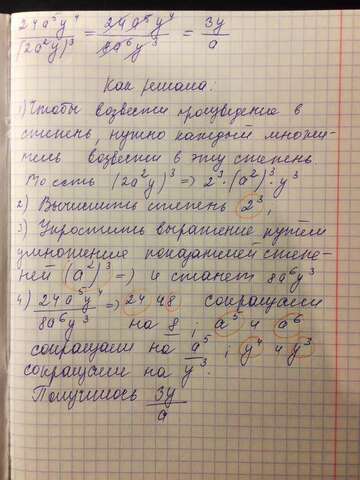 24a⁵y⁴/(2a²y)³ = 24a⁵y⁴/8a⁶y³ = 3y/a
Как решала:
1) Чтобы возвести произведение в
степень, нужно каждый множи-
тель возвести в эту степень
То есть (2a²y)³ => 2³·(a²)³·y³
2) Вычислить степень 2³,
3) Упростить выражение путём
умножения показателей степе-
ней (a²)³ => и станет 8a⁶y³
4) 24a⁵y⁴/8a⁶y³ => 24 и 8 сокращаем
на 8 ; a⁵ и a⁶
сокращаем на a⁵ ; y⁴ и y³
сокращаем на y³.
Получилось 3y/a